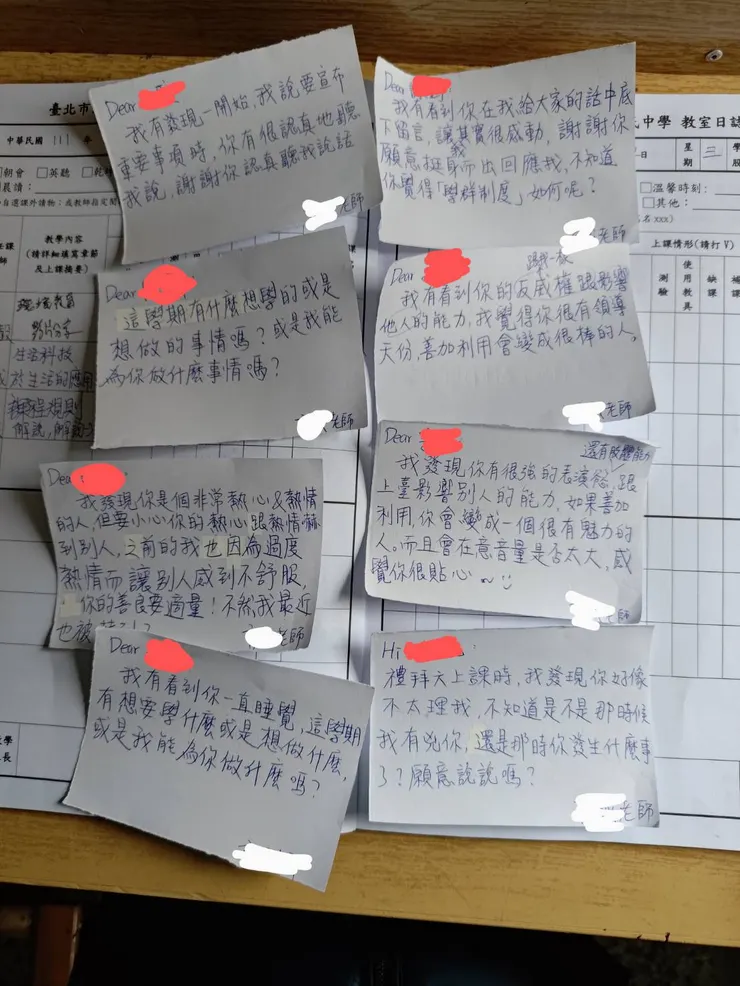 臺北市
中華民國 111 年
朝會 □英聽
晨讀:
教學內容
(請詳細填寫章節
及上課摘要)
生活科技
解說,
Dear
我有發現一開始,我說要宣布
重要事項時,你有很認真地聽
我說,謝謝你認真聽我說話
老師
Dear
這學期有什麼想學的或是
想做的事情嗎?或是我能
為你做什麼事情嗎?
老師
Dear
我發現你是個非常熱心&熱情
的人,但要小心你的熱心跟熱情嚇
到別人,之前的我也因為過度
熱情而讓別人感到不舒服,
你的善良要適量!不然我最近
也被
老師
Dear
我有看到你一直睡覺,這學期
有想要學什麼或是想做什麼,
或是我能為你做什麼嗎?
中學 教室日誌
日 星期 三
□溫馨時刻:
□其他:
上課情形(請打 V)
測驗 使用教具 缺課 補課
Dear
我有看到你在我給大家的話中底
下留言,讓我其實很感動,謝謝你
願意挺身而出回應我,不知道
你覺得「學群制度」如何呢?
老師
Dear
我有看到你的反威權跟影響
他人的能力,我覺得你很有領導
天份,善加利用會變成很棒的人。
老師
Dear
還有肢體能力
我發現你有很強的表演慾,跟
上臺影響別人的能力,如果善加
利用,你會變成一個很有魅力的
人。而且會在意音量是否太大,感
覺你很貼心~
老師
Hi
禮拜六上課時,我發現你好像
不太理我,不知道是不是那時候
我有兇你,還是那時你發生什麼事
了?願意說說嗎?
老師